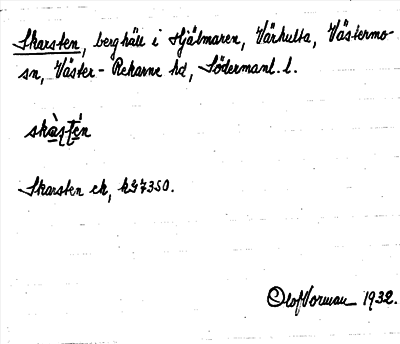 Skarsten, berghäll i Hjälmaren, Värhulta, Västermo-
sn, Väster-Rekarne hd, Södermanl. l.
skàştén
Skarsten ek, kG7350.
Olof Vorman 1932.